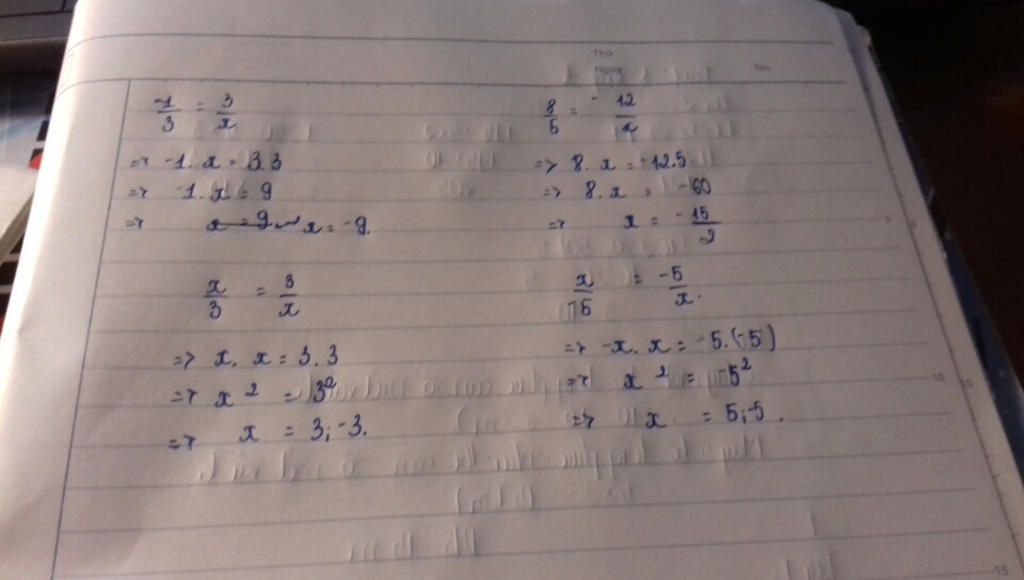 -1/3 = 3/x
=> -1. x = 3.3
=> -1. x = 9
=> x = -9.
8/5 = -12/x
=> 8. x = -12.5
=> 8. x = -60
=> x = -15/2
x/3 = 3/x
=> x. x = 3.3
=> x² = 3²
=> x = 3; -3.
x/-5 = -5/x.
=> -x. x = -5.(-5)
=> x² = -5²
=> x = 5; -5.
No